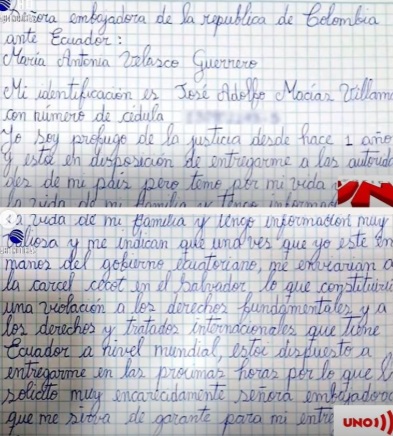 señora embajadora de la republica de Colombia
ante Ecuador :
Maria Antonia Velasco Guerrero
Mi identificación es José Adolfo Macías Villam
con número de cédula
Yo soy profugo de la justicia desde hace 1 año
y estoi en disposición de entregarme a las autorida
des de mi país pero temo por mi vida y
la vida de mi familia y tengo informac
la vida de mi familia y tengo información muy
liosa y me indican que una ves que yo este en
manos del gobierno ecuatoriano, me enviarian a
la carcel cecot en el Salvador lo que constituiri
una violación a los derechos fundamentales y a
los derechos y tratados internacionales que tiene
Ecuador a nivel mundial, estoi dispuesto a
entregarme en las proximas horas por lo que l
solicito muy encarecidamente señora embajadora
que me sirva de garante para mi entre
UNO